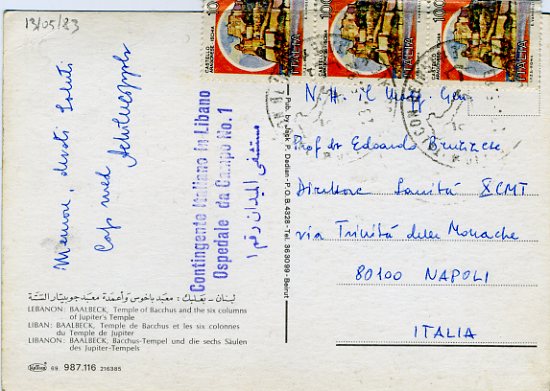 13/05/83
Memori, devoti saluti
Cap. med
Contingente Italiano in Libano
Ospedale da Campo No. 1
مستشفى الميدان رقم ١
لبنان - بعلبك : معبد باخوس وأعمدة معبد جوبيتار الستة
LEBANON: BAALBECK, Temple of Bacchus and the six columns
of Jupiter's Temple
LIBAN: BAALBECK, Temple de Bacchus et les six colonnes
du Temple de Jupiter
LIBANON: BAALBECK, Bacchus-Tempel und die sechs Säulen
des Jupiter-Tempels
68 987.116 216385
Pub. by Jack P. Dedian - P.O.B. 4328 - Tel. 363099 - Beirut
CASTELLO
ARAGONESE ISCHIA
ITALIA
CASTELLO
ARAGONESE ISCHIA
1000
ITALIA
CASTELLO
ARAGONESE ISCHIA
1000
ITALIA
N.H. il Magg. Gen
Prof. dr Edoardo
Direttore Sanità XCMT
via Trinità delle Monache
80100 NAPOLI
ITALIA